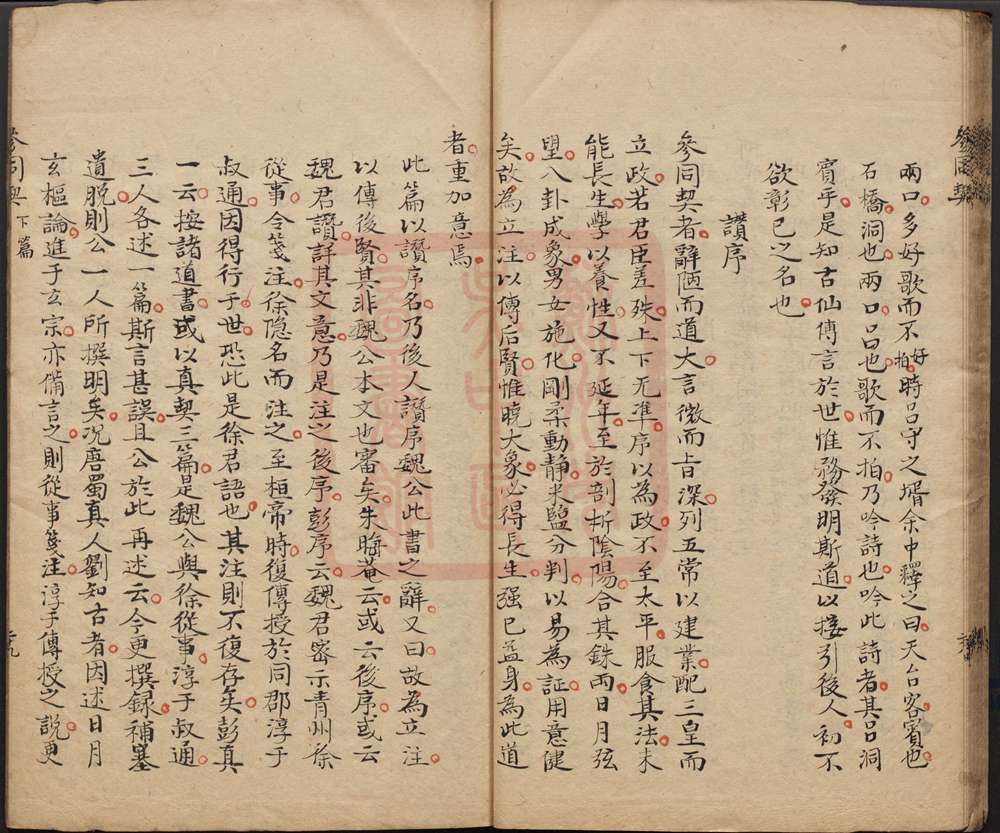 兩口多好歌而不好拍時呂守之壻余中釋之曰天台客賓也
石橋洞也兩口呂也歌而不拍乃吟詩也吟此詩者其呂洞
賓乎是知古仙傳言於世惟務發明斯道以接引後人初不
欲彰已之名也
讚序
參同契者辭陋而道大言微而旨深列五常以建業配三皇而
立政若君臣差殊上下无準序以為政不至太平服食其法未
能長生學以養性又不延年至於剖析陰陽合其銖兩日月弦
望八卦成象男女施化剛柔動靜米鹽分判以易為証用意健
矣故為立注以傳后賢惟曉大象必得長生强已益身為此道
者重加意焉
此篇以讚序名乃後人讚序魏公此書之辭又曰故為立注
以傳後賢其非魏公本文也審矣朱晦菴云或云後序或云
魏君讚詳其文意乃是注之後序彭序云魏君密示青州徐
從事令箋注徐隐名而注之至桓帝時復傳授於同郡淳于
叔通因得行于世恐此是徐君語也其注則不復存矣彭真
一云按諸道書或以真契三篇是魏公與徐從事淳于叔通
三人各述一篇斯言甚誤且公於此再述云今更撰録補塞
遺脱則公一人所撰明矣况唐蜀真人劉知古者因述日月
玄樞論進于玄宗亦備言之則從事箋注淳于傳授之説更
參同契 下篇